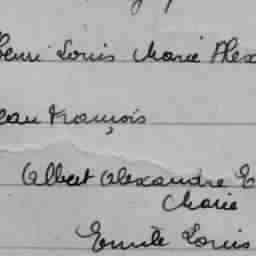 Henri Louis Marie Alex
Jean François
Albert Alexandre E
Marie
Emile Louis